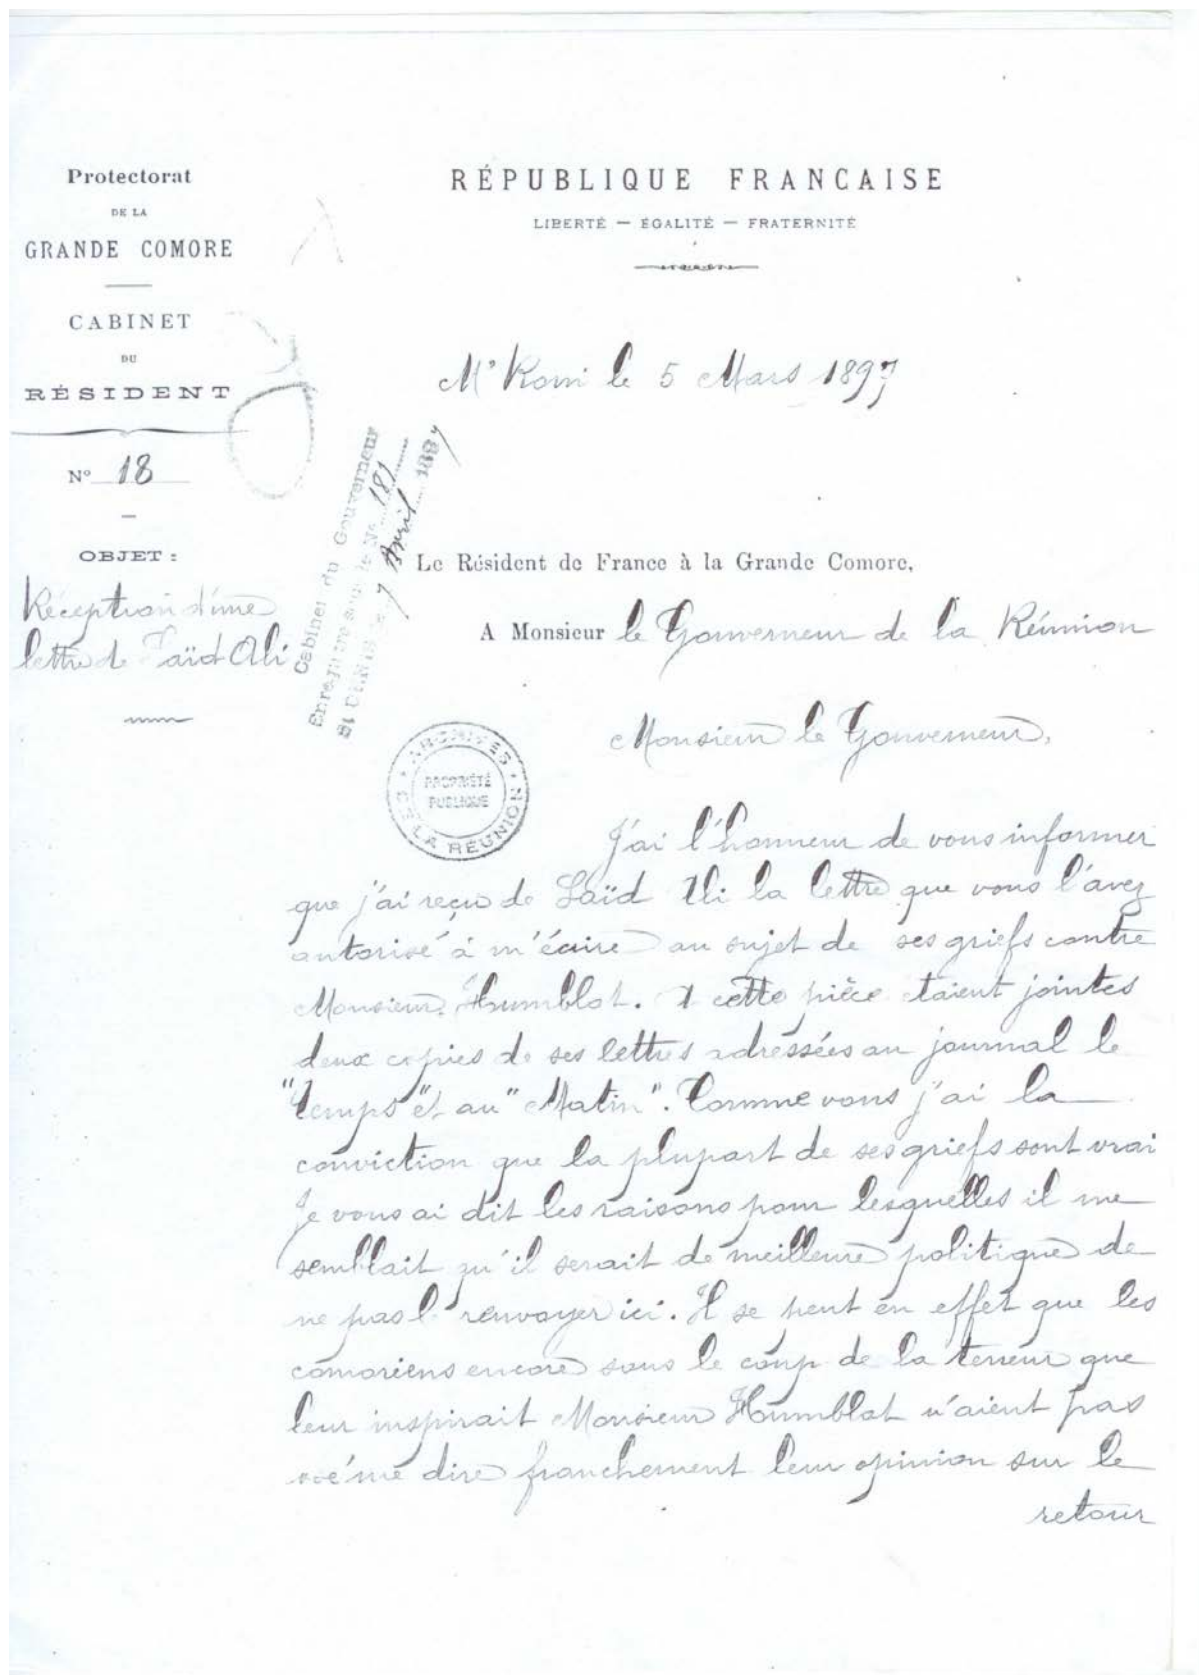 Protectorat
DE LA
GRANDE COMORE
CABINET
DU
RÉSIDENT
N° 18
OBJET :
Réception d'une
lettre de Saïd Ali
RÉPUBLIQUE FRANCAISE
LIBERTÉ — ÉGALITÉ — FRATERNITÉ
M'Roni le 5 Mars 1897
Cabinet du Gouverneur
Enregistré sous le No 181
St DENIS le 7 Avril 1897
Le Résident de France à la Grande Comore,
A Monsieur le Gouverneur de la Réunion
Monsieur le Gouverneur,
ARCHIVES DE LA RÉUNION
PROPRIÉTÉ
PUBLIQUE
J'ai l'honneur de vous informer
que j'ai reçu de Saïd Ali la lettre que vous l'avez
autorisé à m'écrire au sujet de ses griefs contre
Monsieur Humblot. A cette pièce étaient jointes
deux copies de ses lettres adressées au journal le
"Temps" et au "Matin". Comme vous j'ai la
conviction que la plupart de ses griefs sont vrai
Je vous ai dit les raisons pour lesquelles il me
semblait qu'il serait de meilleure politique de
ne pas l renvoyer ici. Il se peut en effet que les
comoriens encore sous le coup de la terreur que
leur inspirait Monsieur Humblot n'aient pas
osé me dire franchement leur opinion sur le
retour